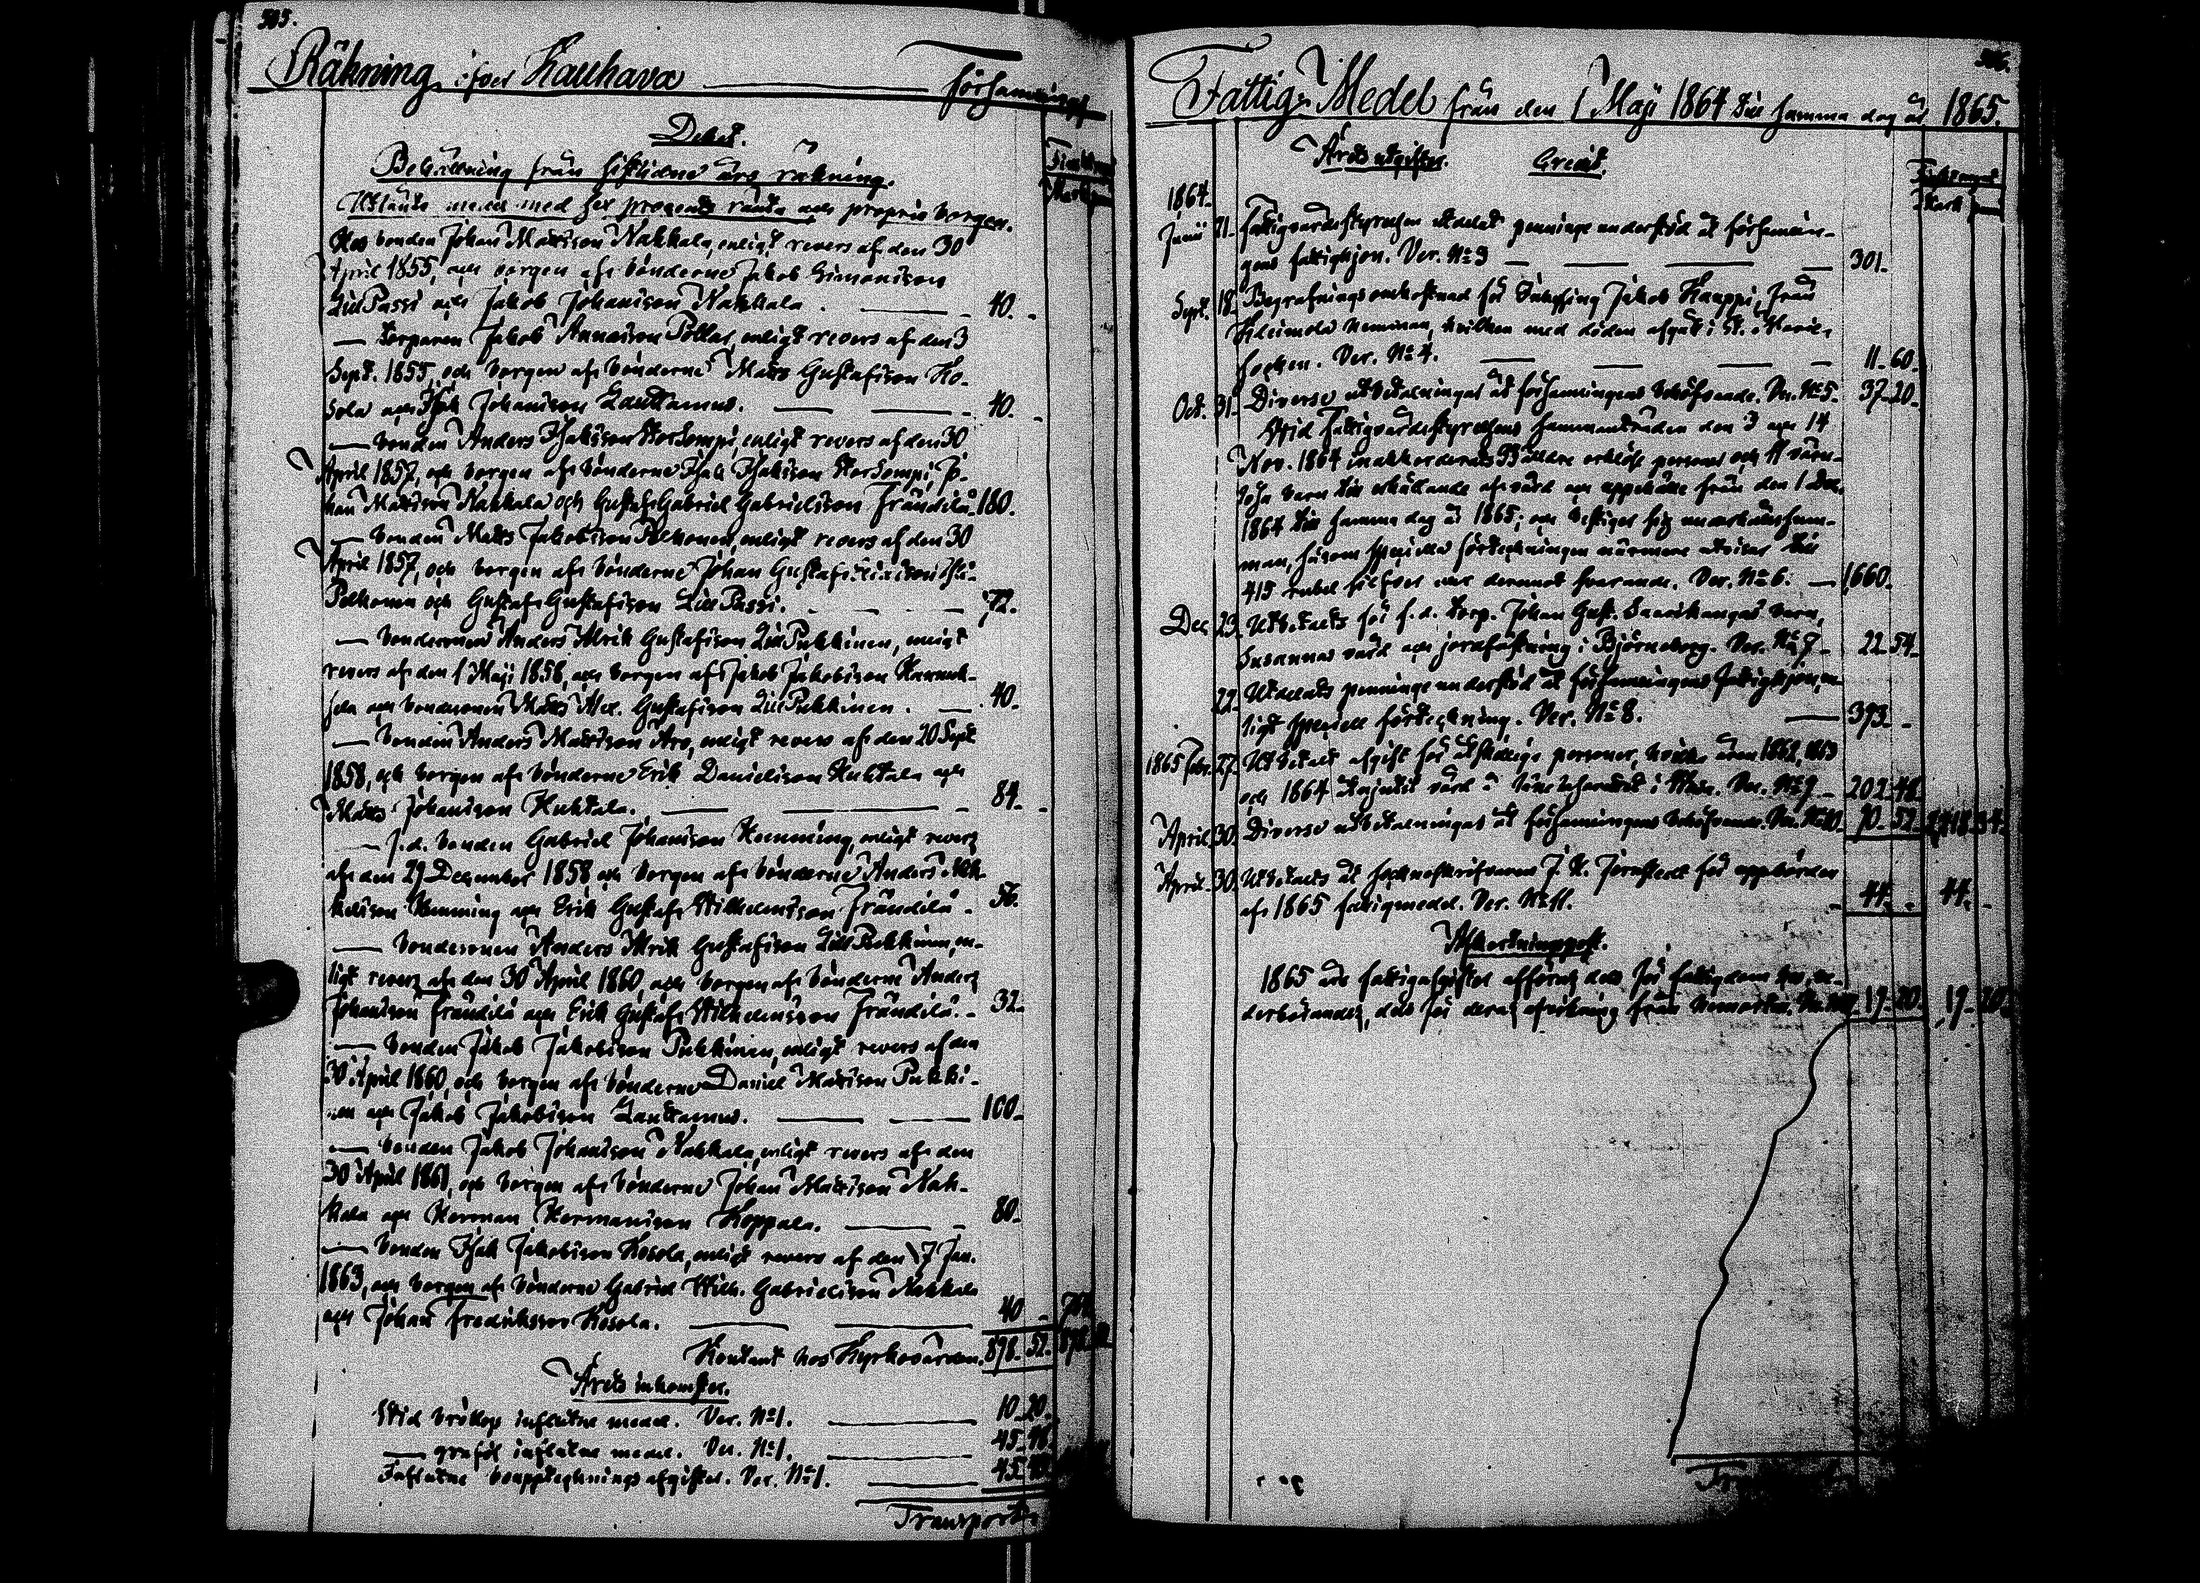 505.
Räkning öfver Kauhava församlings
Debet.
Behållning från sistlidne års räkning.
Utlånte medel med sex procents ränta och proprie borgen.
Hos bonden Johan Mattsson Nahkala, enligt revers af den 30
April 1855, och borgen af bönderne Jakob Simonsson
Lill Passi och Jakob Johansson Nahkala. 40.
— torparen Jakob Annaison Pollar, enligt revers af den 3
Sept. 1855, och borgen af bönderne Matts Gustafsson Ko-
sola och Isak Johansson Lauttamus. 40.
— bonden Anders Isaksson Stor Lompi, enligt revers af den 30
April 1857, och borgen af bönderne Isak Isaksson Stor Lompi, Jo-
han Mattsson Nahkala och Gustaf Gabriel Gabrielsson Frändilä. 180.
— bonden Matts Jakobsson Pelkonen, enligt revers af den 30
April 1857, och borgen af bönderne Johan Gustaf
Pelkonen och Gustaf Gustafsson Lill Passi. 72.
— bondesonen Anders Ulrik Gustafsson Lill Pukkinen, enligt
revers af den 1 Maji 1858, och borgen af Jakob Jakobsson
och bondesonen Matts Alex. Gustafsson Lill Pukkinen. 40.
— bonden Anders Mattsson Aro, enligt revers af den 20 Sept
1858, och borgen af bönderne Erik Danielsson Huhtala och
Matts Johansson Huhtala. 84.
— f.d. bonden Gabriel Johansson Hemming, enligt revers
af den 29 December 1858 och borgen af bönderne Anders Mik-
kelsson Hemming och Erik Gustaf Wilhelmsson Frändilä. 56.
— bondesonen Anders Ulrik Gustafsson Lill Pukkinen, en-
ligt revers af den 30 April 1860, och borgen af bönderne Anders
Johansson Frändilä och Erik Gustaf Wilhelmsson Frändilä. 32.
— bonden Jakob Jakobsson Pukkinen, enligt revers af den
30 April 1860, och borgen af bönderne Daniel Mattsson Pukki-
nen och Jakob Jakobsson Lauttamus. 100.
— bonden Jakob Johansson Nahkala, enligt revers af den
30 April 1861, och borgen af bönderne Johan Mattsson Nah-
kala och Herman Hermansson Hoppala. 80.
— bonden Isak Jakobsson Kosola, enligt revers af den 17 Jan.
1863, och borgen af bönderne Gabriel Wilh. Gabrielsson Nahkala
och Johan Fredriksson Kosola. 40
Kontant hos Kyrkovärden. 898. 52.
Årets inkomster.
Wid bröllop influtne medel. Ver. No 1. 10. 20.
— graföl influtne medel. Ver. No 1. 45.
Influtne bouppteckningsafgifter. Ver. No 1. 45
Transport
506.
Fattig-Medel från den 1 Maji 1864 till samma dag år 1865.
Årets utgifter. Credit.
1864.
Junii 21. Fattigvårdsstyrelsen utdelat penninge understöd åt församlin-
gens fattighjon. Ver. No 3 301.
Sept. 18. Begrafningsomkostnad för Inhysing Jakob Kauppi, från
Heimola hemman, hvilken med döden afgått i St. Marie
socken. Ver. No 4. 11. 60.
Oct. 31. Diverse utbetalningar åt församlingens behöfvande. Ver. No 5. 37. 20.
Wid Fattigvårdsstyrelsens sammanträden den 3 och 14
Nov. 1864 inackorderades 33 äldre orklöse personer och 11 värn-
lösa barn till erhållande af vård och uppehälle från den 1 Dec.
1864 till samma dag år 1865; och bestiger sig underhållssum-
man, såsom speciella förteckningen närmare utvisar till
415 rubel silfver eller deremot svarande. Ver. No 6. 1,660.
Dec. 23. Utbetalts för f.d. torp. Johan Gust. Saarikangas barn,
Susannas vård och jordfästning i Björneborg. Ver. No 7. 22. 54.
29. Utdelats penninge understöd åt församlingens fattighjon, en-
ligt speciell förteckning. Ver. No 8. 393.
1865 Febr. 27. Utbetalt afgift för åtskillige personer, hvilka åren 1862, 1863
och 1864 åtnjutit vård å länelasarettet i Wasa. Ver. No 9. 202. 48.
April 30. Diverse utbetalningar åt församlingens behöfvande. Ver. No 10. 70. 52.
April. 30. Utbetalts åt sockneskrifvaren J. K. Jernstedt för uppbörden
af 1865 fattigmedel. Ver. No 11. 44. 44.
Afkortningspost.
1865 års fattigafgifter afföres dels för fattigdom hos ve-
derbörandes, dels för deras afvikning från hemorten. 19. 20. 19. 20